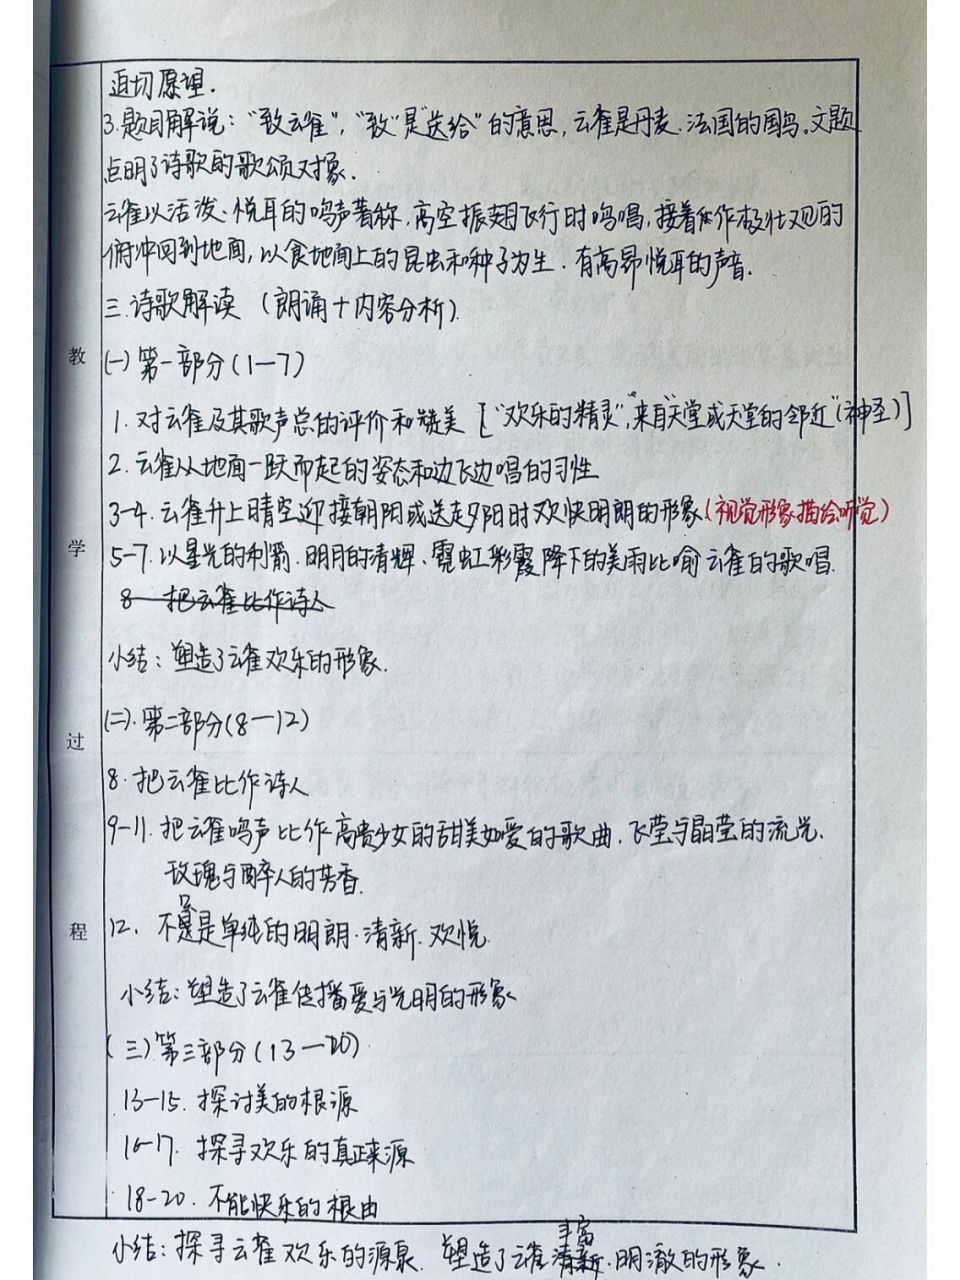 迫切愿望.
3.题目解说："致云雀","致"是"送给"的意思,云雀是丹麦.法国的国鸟。文题
点明了诗歌的歌颂对象.
云雀以活泼.悦耳的鸣声著称,高空振翅飞行时鸣唱,接着作极壮观的
俯冲回到地面,以食地面上的昆虫和种子为生.有高昂悦耳的声音.
三.诗歌解读(朗诵+内容分析).
教
(一)第一部分(1—7)
1.对云雀及其歌声总的评价和赞美["欢乐的精灵","来自天堂或天堂的邻近"(神圣)]
2.云雀从地面一跃而起的姿态和边飞边唱的习性
3-4.云雀升上晴空迎接朝阳或送走夕阳时欢快明朗的形象(视觉形象描绘听觉)
学
5-7.以星光的利箭.明月的清辉.霓虹彩霞降下的美雨比喻云雀的歌唱.
8 把云雀比作诗人
小结:塑造了云雀欢乐的形象.
(二).第二部分(8—12)
过
8.把云雀比作诗人
9-11.把云雀鸣声比作高贵少女的甜美如爱的歌曲.飞萤与晶莹的流光.
玫瑰与醉人的芳香.
12.不是单纯的明朗.清新.欢悦.
程
小结:塑造了云雀传播爱与光明的形象
(三)第三部分(13—20)
13-15.探讨美的根源
16-17.探寻欢乐的真正来源
18-20.不能快乐的根由
小结:探寻云雀欢乐的源泉 塑造了云雀清新丰富.明澈的形象.